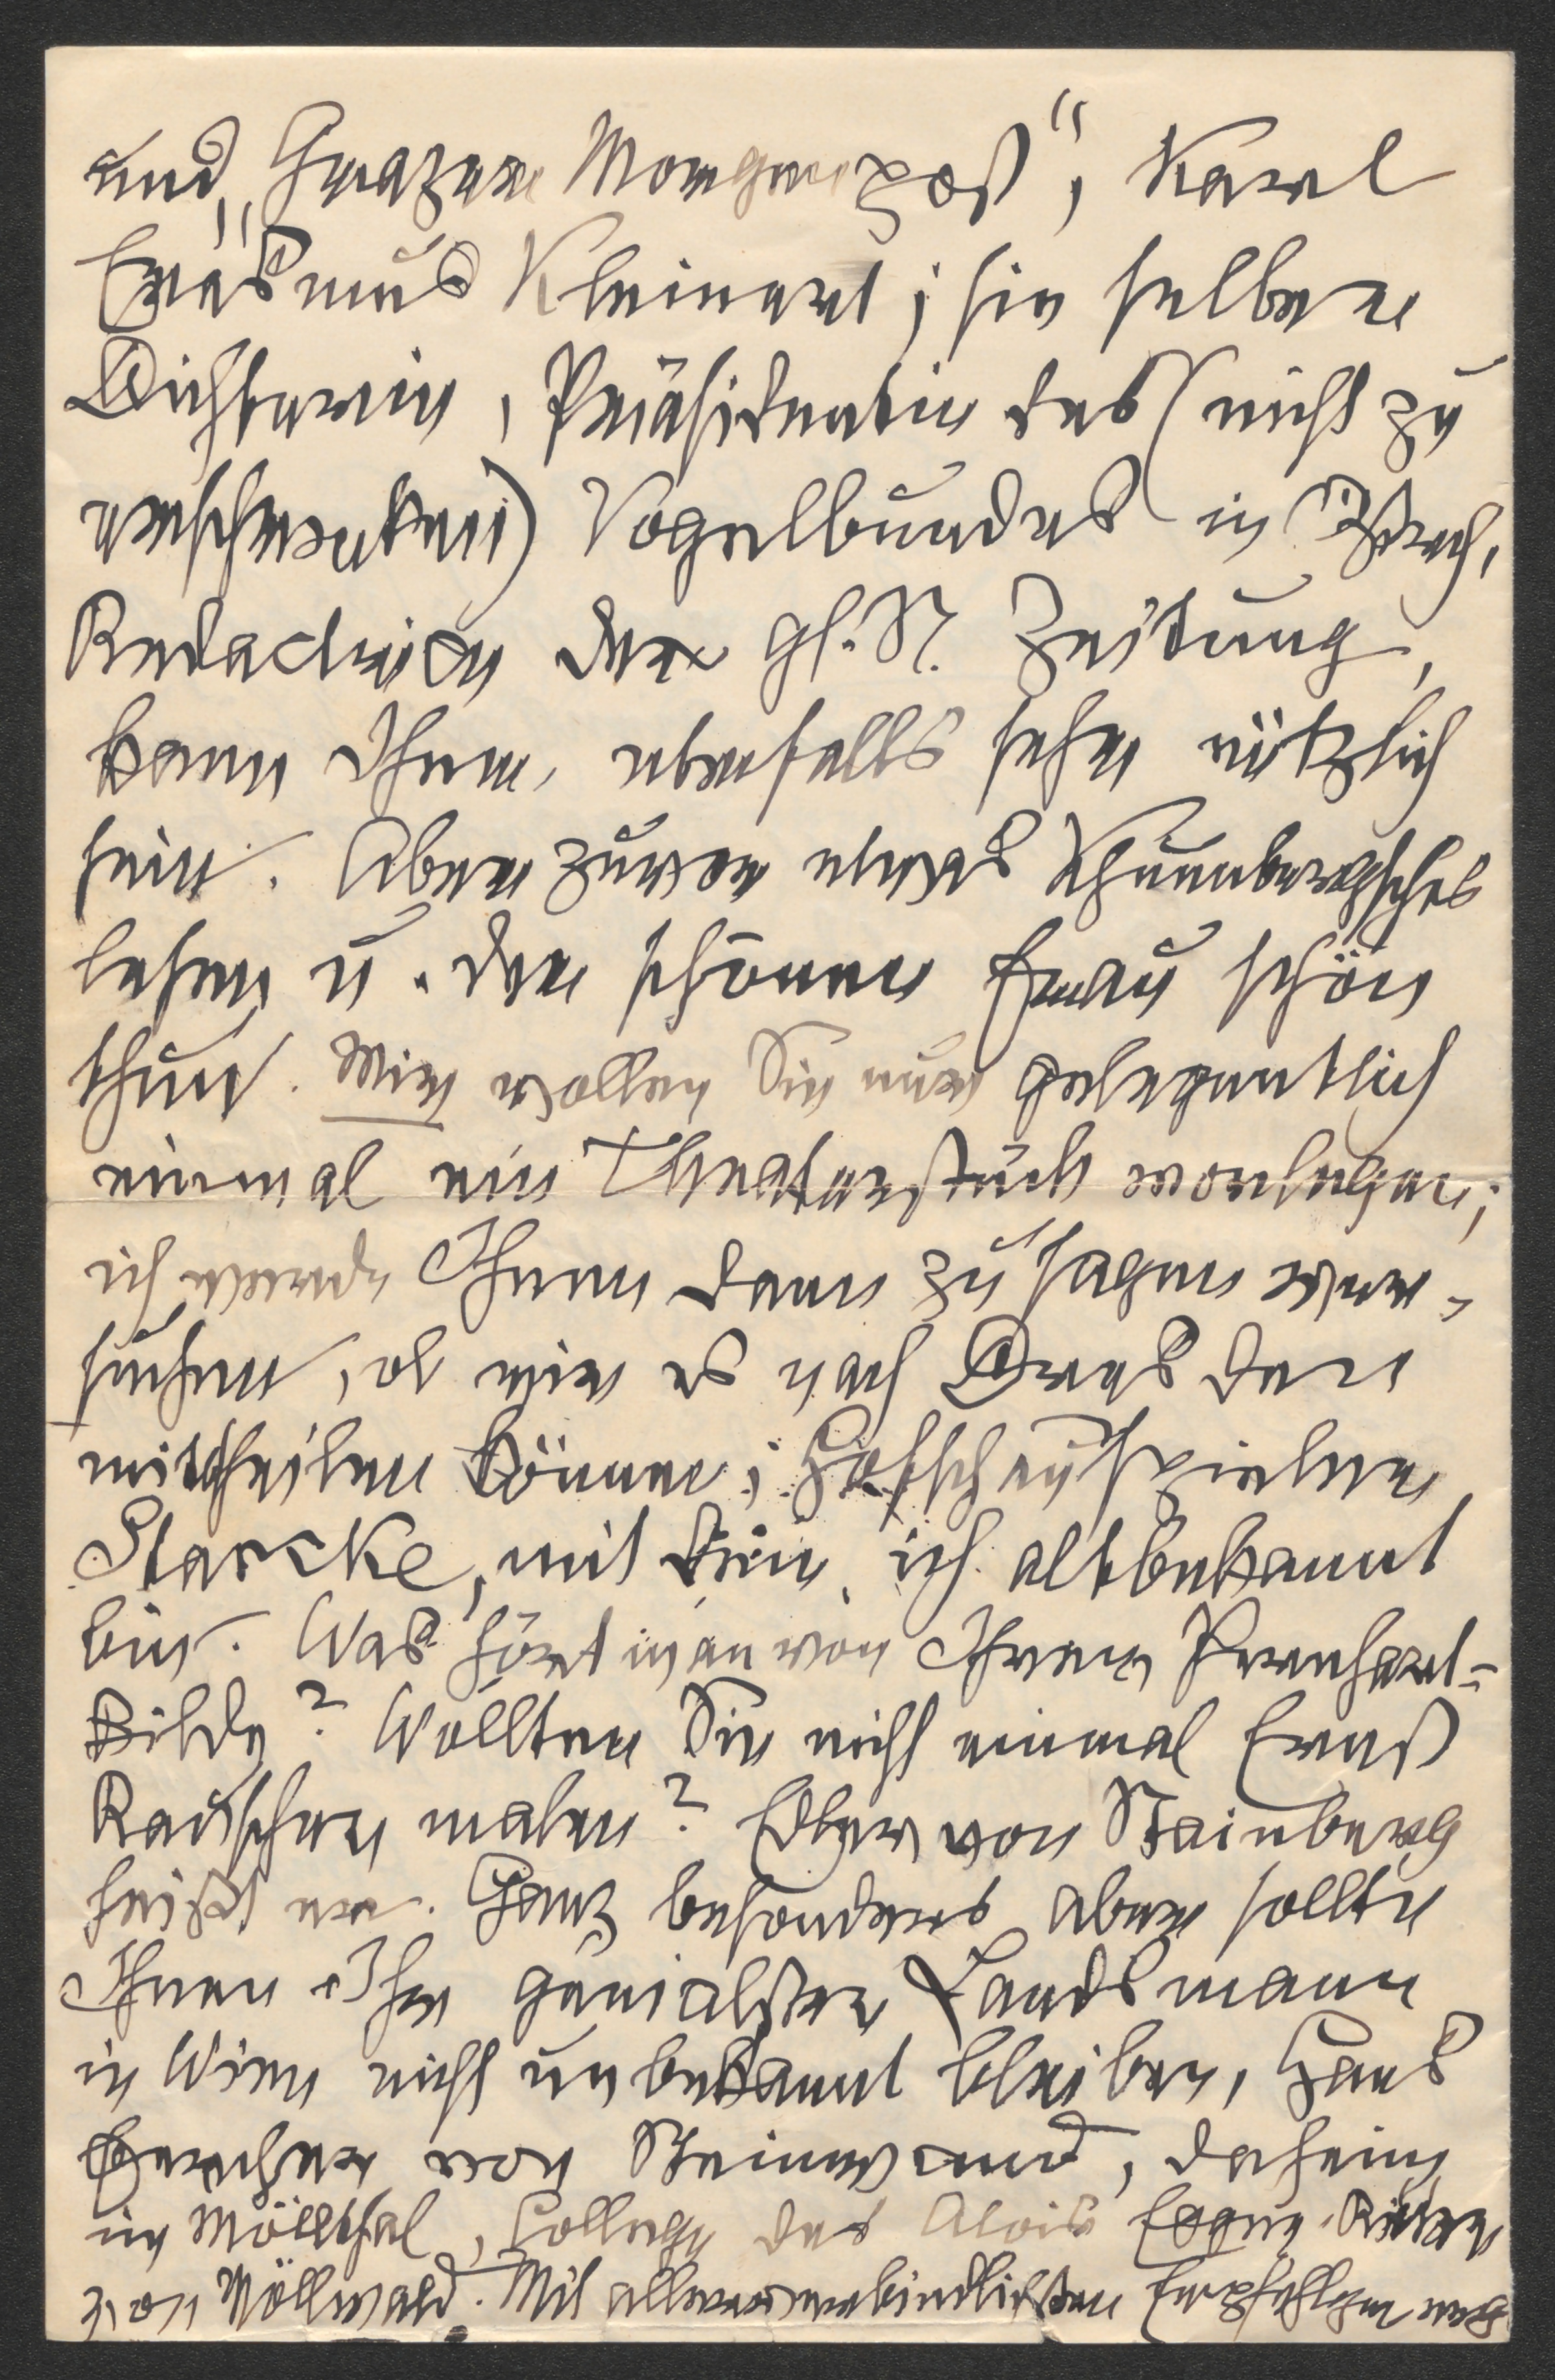 und „Grazer Morgenpost“, Karl
Erasmus Kleinert; sie selber
Dichterin, Präsidentin des (nicht zu
verschweren) Vogelbundes in
Redactrice der gf. N. Zeitung,
kann Ihnen ebenfalls sehr nützlich
sein. Aber zuvor etwas Khuenbergsches
lesen u. der schönen Frau schön
thun. Mir wollen Sie nur gelegentlich
einmal ein Theaterstück vorlegen;
ich werde Ihnen dann zu sagen ver-
suchen, ob wir es nach Dresden
mittheilen können; Hofschauspieler
Starcke, mit dem ich altbekannt
bin. Was hört man von Ihrem Pernhart-
Bilde? Wollten Sie nicht einmal Ernst
Rauscher malen? Edler von Stainberg
heißt er. Ganz besonders aber sollte
Ihnen Ihr genialster Landsmann
in Wien nicht unbekannt bleiben, Hans
von Steinwand, daheim
im Möllthal, Collega des Alois Egger Ritter
von Möllwald. Mit allerverbindlichsten Empfehlungen